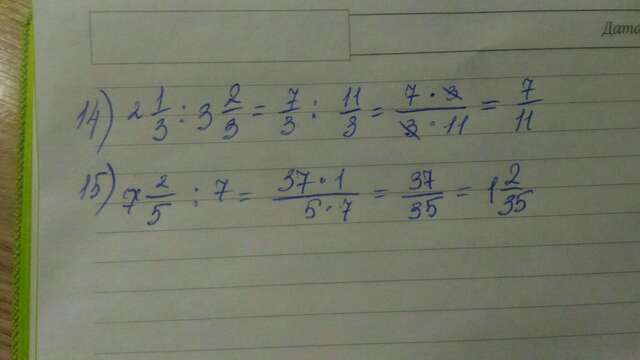 Дата
14) 2 1/3 : 3 2/3 = 7/3 : 11/3 = 7 · 3 / 3 · 11 = 7/11
15) 7 2/5 : 7 = 37 · 1 / 5 · 7 = 37/35 = 1 2/35